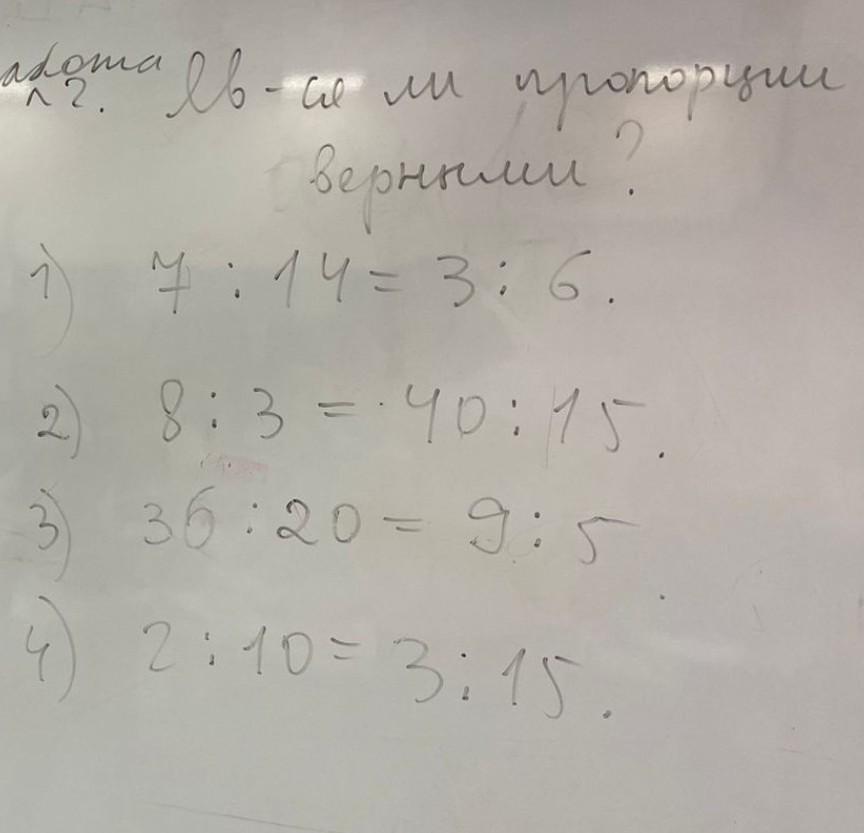 абота
№2. Яв-ся ли пропорции
верными?
1) 7 : 14 = 3 : 6.
2) 8 : 3 = 40 : 15.
3) 36 : 20 = 9 : 5.
4) 2 : 10 = 3 : 15.